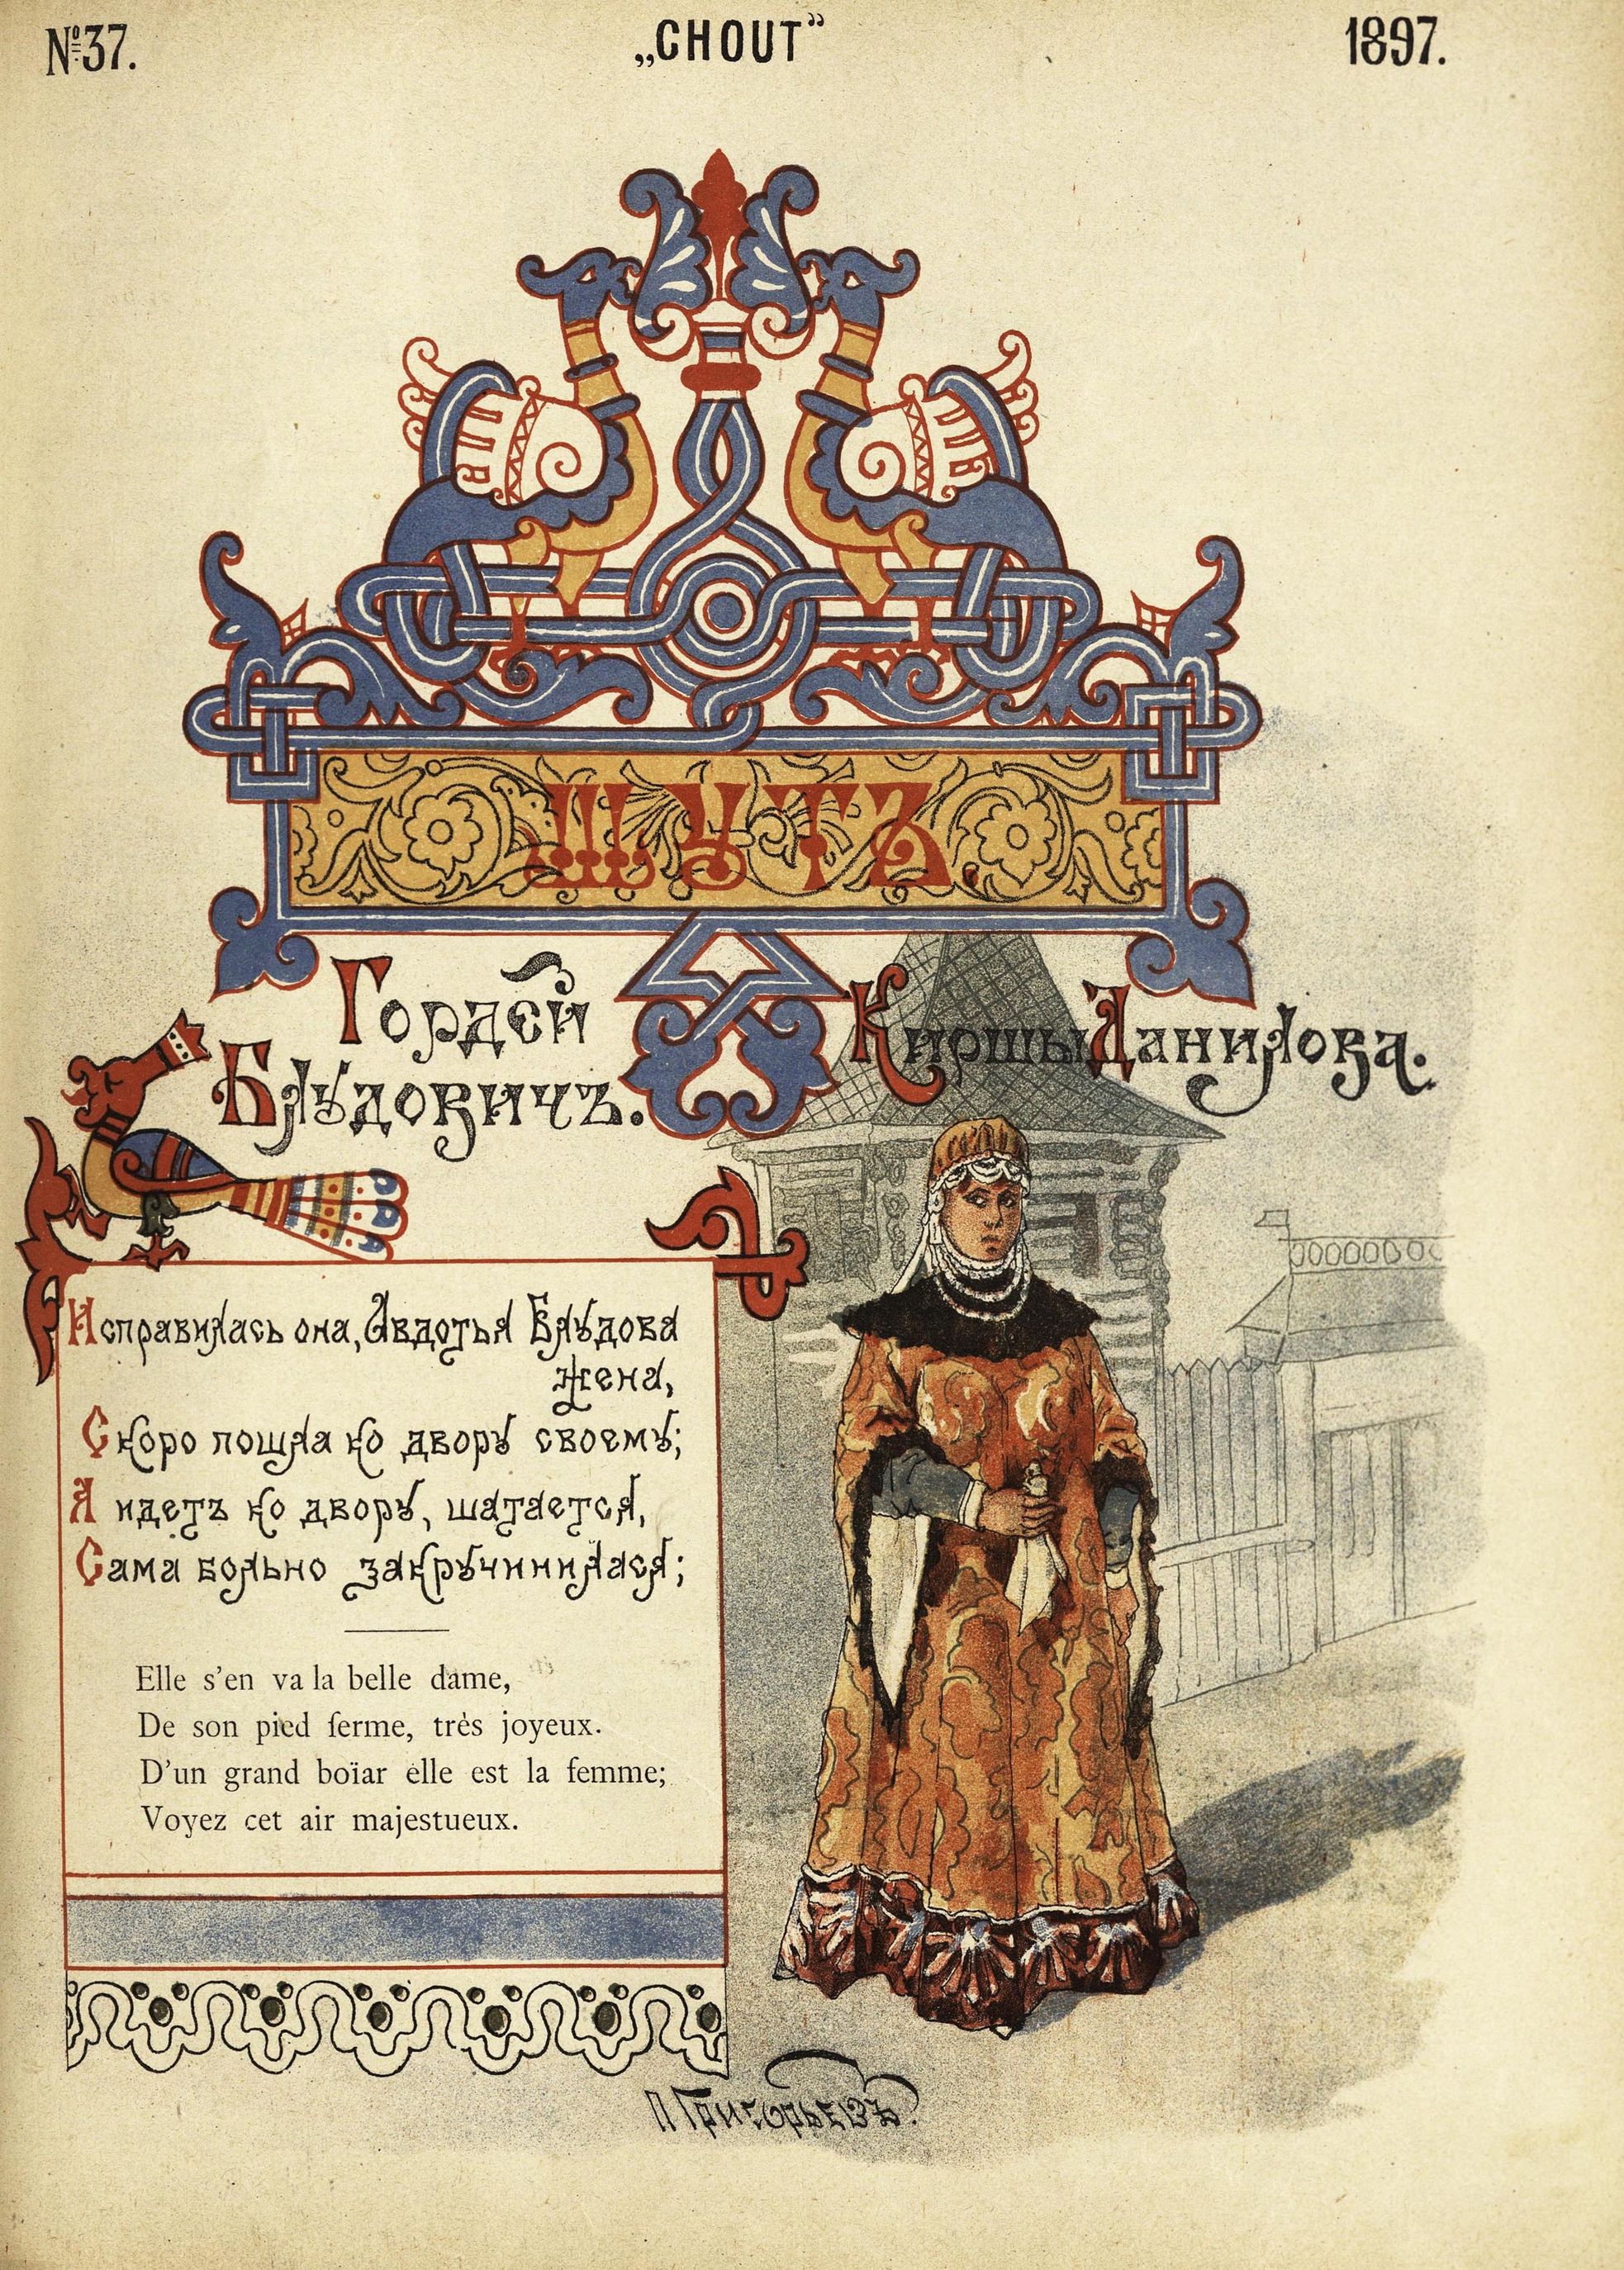 №37.
„CHOUT“
1897.
ШУТЪ.
Гордей
Блудовичъ.
Кирши Данилова.
Исправилась она, Авдотья Блудова
жена,
Скоро пошла ко двору своему;
А идетъ ко двору, шатается,
Сама больно закручинилася;
Elle s'en va la belle dame,
De son pied ferme, très joyeux.
D'un grand boïar elle est la femme;
Voyez cet air majestueux.
П Григорьевъ.